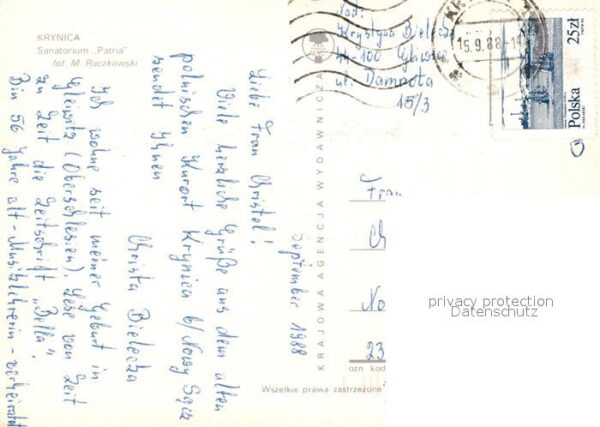 KRYNICA
Sanatorium „Patria"
fot. M. Raczkowski
Nad:
Krystyna Bielecka
44-100 Gliwice
ul. Damrota
15/3
15.9.88
25zł
Polska
September 1988
Liebe Frau Christel!
Viele herzliche Grüße aus dem alten
polnischen Kurort Krynica b/Nowy Sącz
sendet Ihnen
Christa Bielecka
Ich wohne seit meiner Geburt in
Gleiwitz (Oberschlesien). Lese von Zeit
zu Zeit die Zeitschrift „Bella".
Bin 56 Jahre alt - Musiklehrerin - verheiratet
KRAJOWA AGENCJA WYDAWNICZA
Frau
Ch
No
23
ozn. kod
Wszelkie prawa zastrzeżone
privacy protection
Datenschutz